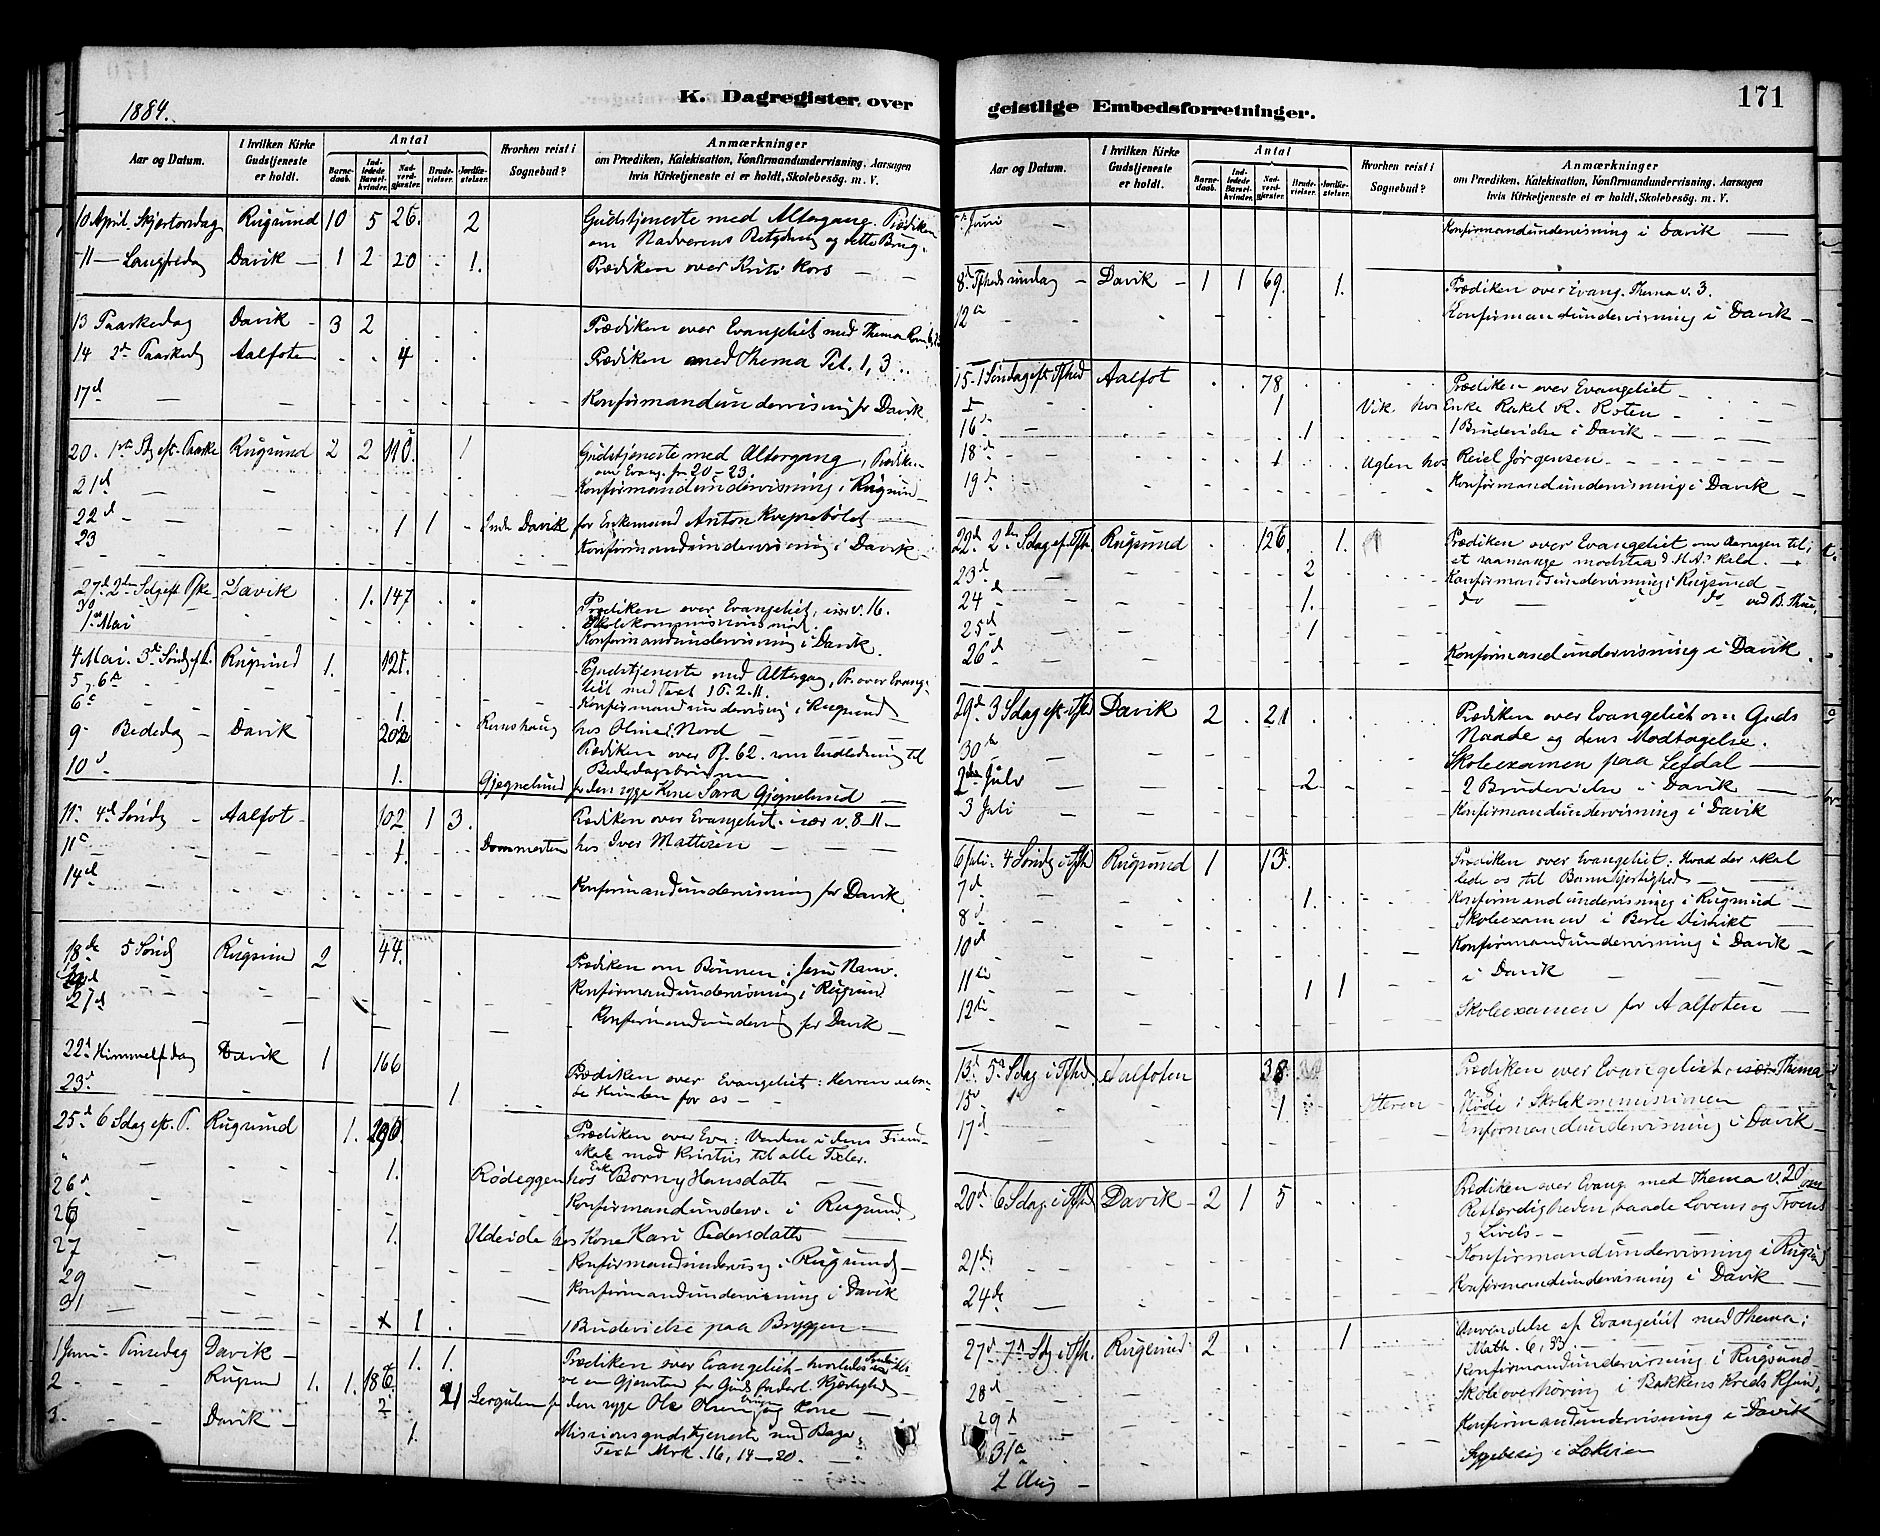 1884.
K. Dagregister over
Aar og Datum.
I hvilken Kirke Gudstjeneste er holdt.
Antal
Barnedaab.
Indledede Barselkvinder.
Nadverdgjester.
Brudevielser.
Jordfæstelser.
Hvorhen reist i Sognebud?
Anmærkninger
om Prædiken, Katekisation, Konfirmandundervisning, Aarsagen
hvis Kirketjeneste ei er holdt, Skolebesøg. m. V.
10 April Skjertorsdag Rugsund 10 5 26. 2 Gudstjeneste med Altergang. Prædiken
om Nadverens Betydning og dette Brug.
11 — Langfredag Davik — 1 2 20 1. Prædiken over Kristi Kors —
13 Paaskedag Davik - 3 2 Prædiken over Evangeliet med Thema
14 2den Paaskedg Aalfoten 4 Prædiken med Thema Pet. 1, 3
17d — Konfirmandundervisning for Davik
20. 1ste Sdg eft. Paaske Rugsund 2 2 110. 1 Gudstjeneste med Altergang, Prædiken
om Evang. fra 20-23.
21d — Konfirmandundervisning i Rugsund
22d 1 1 Indre Davik for Enkemand Anton
23 Konfirmandundervisning i Davik
27d 2den Sdg eft. Paske Davik 1. 147 Prædiken over Evangeliet, især v. 16.
30 Skolekommissionsmøde.
1ste Mai Konfirmandundervisning i Davik.
4 Mai. 3d Søndg eft. P. Rugsund 1. 121. Gudstjeneste med Altergang, Pr. over Evange-
liet med Text 1 P. 2. 11.
5, 6te Konfirmandundervisning i Rugsund
6te 1. hos Nord
9. Bededag — Davik 202 Prædiken over Ps. 62. som Indledning til
Bededagsbønnen
10d 1. Gjegnelund for den syge Kone Sara Gjegnelund —
11. 4d Søndg Aalfot - 102 1 3. Prædiken over Evangeliet. især v. 8-11 —
11te 1. Dommesten hos Iver Mattisen —
14d Konfirmandundervisning for Davik.
18de 5 Søndg Rugsund 2 44. Prædiken om Bønnen i Jesu Navn.
Konfirmandundervisning i Rugsund
27d Konfirmandunderving for Davik —
22d Himmelfdag Davik 1 166 Prædiken over Evangeliet: Herren aabne-
de Himlen for os —
23d 1
25d 6 Sdag eft. P. Rugsund 1. 290 Prædiken over Eva: Verden i dens Fiend-
skab mod Kristus til alle Tider.
1. Rødeggen hos Enke Borny Hansdatter —
26d Konfirmandunderv. i Rugsund
26 1. Ildeide hos Kone Kari Pedersdatter
27 Konfirmandundervisg i Rugsund —
29 Konfirmandundervisning i Davik
31 1 1 Brudevielse paa Bryggen —
1 Juni. Pinsedag Davik — 1. 1. Prædiken over Evangeliet hvorledes
ve en Gjenstand for Guds faderl. Kjærlighed
2 Rugsund 1. 1. 186. 2 Lergulen for den syge Ole Olsen og Kone —
3. Davik — 1. Missionsgudstjeneste med Bøger,
Text Mrk. 16, 14-20.
geistlige Embedsforretninger.
171
Aar og Datum.
I hvilken Kirke Gudstjeneste er holdt.
Antal
Barnedaab.
Indledede Barselkvinder.
Nadverdgjester.
Brudevielser.
Jordfæstelser.
Hvorhen reist i Sognebud?
Anmærkninger
om Prædiken, Katekisation, Konfirmandundervisning, Aarsagen
hvis Kirketjeneste ei er holdt, Skolebesøg. m. V.
Juni — Konfirmandundervisning i Davik —
8d Trheds søndag — Davik - 1 1 69. 1. Prædiken over Evang. Thema v. 3.
12te Konfirmandundervisning i Davik —
15 - 1 Søndag eft Trhed Aalfot 78 Prædiken over Evangeliet
1 Vik hos Enke Rakel R. Roten —
16d 1 1 Brudevielse i Davik —
18d 1 Uglen hos Reiel Jørgensen —
19d Konfirmandundervisning i Davik —
22d 2den Sdag eft Trh. Rugsund 126. 1. Prædiken over Evangeliet om Aarsagen til,
at saamange modstaa d. H. A. Kald.
23d 2 Konfirmandundervisning i Rugsund —
24 — 1. do — do ved B. Thue,
25d 1
26d Konfirmandundervisning i Davik.
29d 3 Sdag eft. Trhed Davik 2 21 Prædiken over Evangeliet om Guds
Naade og dens Modtagelse.
30te Skoleexamen paa Lefdal —
2den Juli 2 2 Brudevielse i Davik —
3 Juli Konfirmandundervisning i Davik
6 Juli. 4 Søndg i Trh Rugsund 1 13. Prædiken over Evangeliet: Hvad der skal
lede os til Barmhjertighed —
7d 1. Konfirmandundervisning i Rugsund —
8d Skoleexamen i Berle Distrikt —
10d Konfirmandundervisning i Davik —
11te 1 1 i Davik —
12te Skoleexamen for Aalfoten —
13d 5d Sdag i Trhd. Aalfoten 38. Prædiken over Evangeliet, især Thema
15d 1 Otteren — Møde i Skolekommissionen
17d Konfirmandundervisning i Davik —
20d 6 Sdag. i Trhd Davik — 2 1 5 Prædiken over Evang. med Thema v. 20 om
Retfærdigheden, baade Lovens og Troens
og Livets —
21d Konfirmandundervisning i Rugsund
24de Konfirmandundervisning i Davik —
27d 7d Sdg i Trh. Rugsund 2 1 Anvendelse af Evangeliet med Thema:
Math. 6, 33
Konfirmandundervisning i Rugsund
28d Skoleoverhøring i Bakkens Kreds Rsund,
29d Konfirmandundervisning i Davik
31te Sygebesøg i
2 Aug —